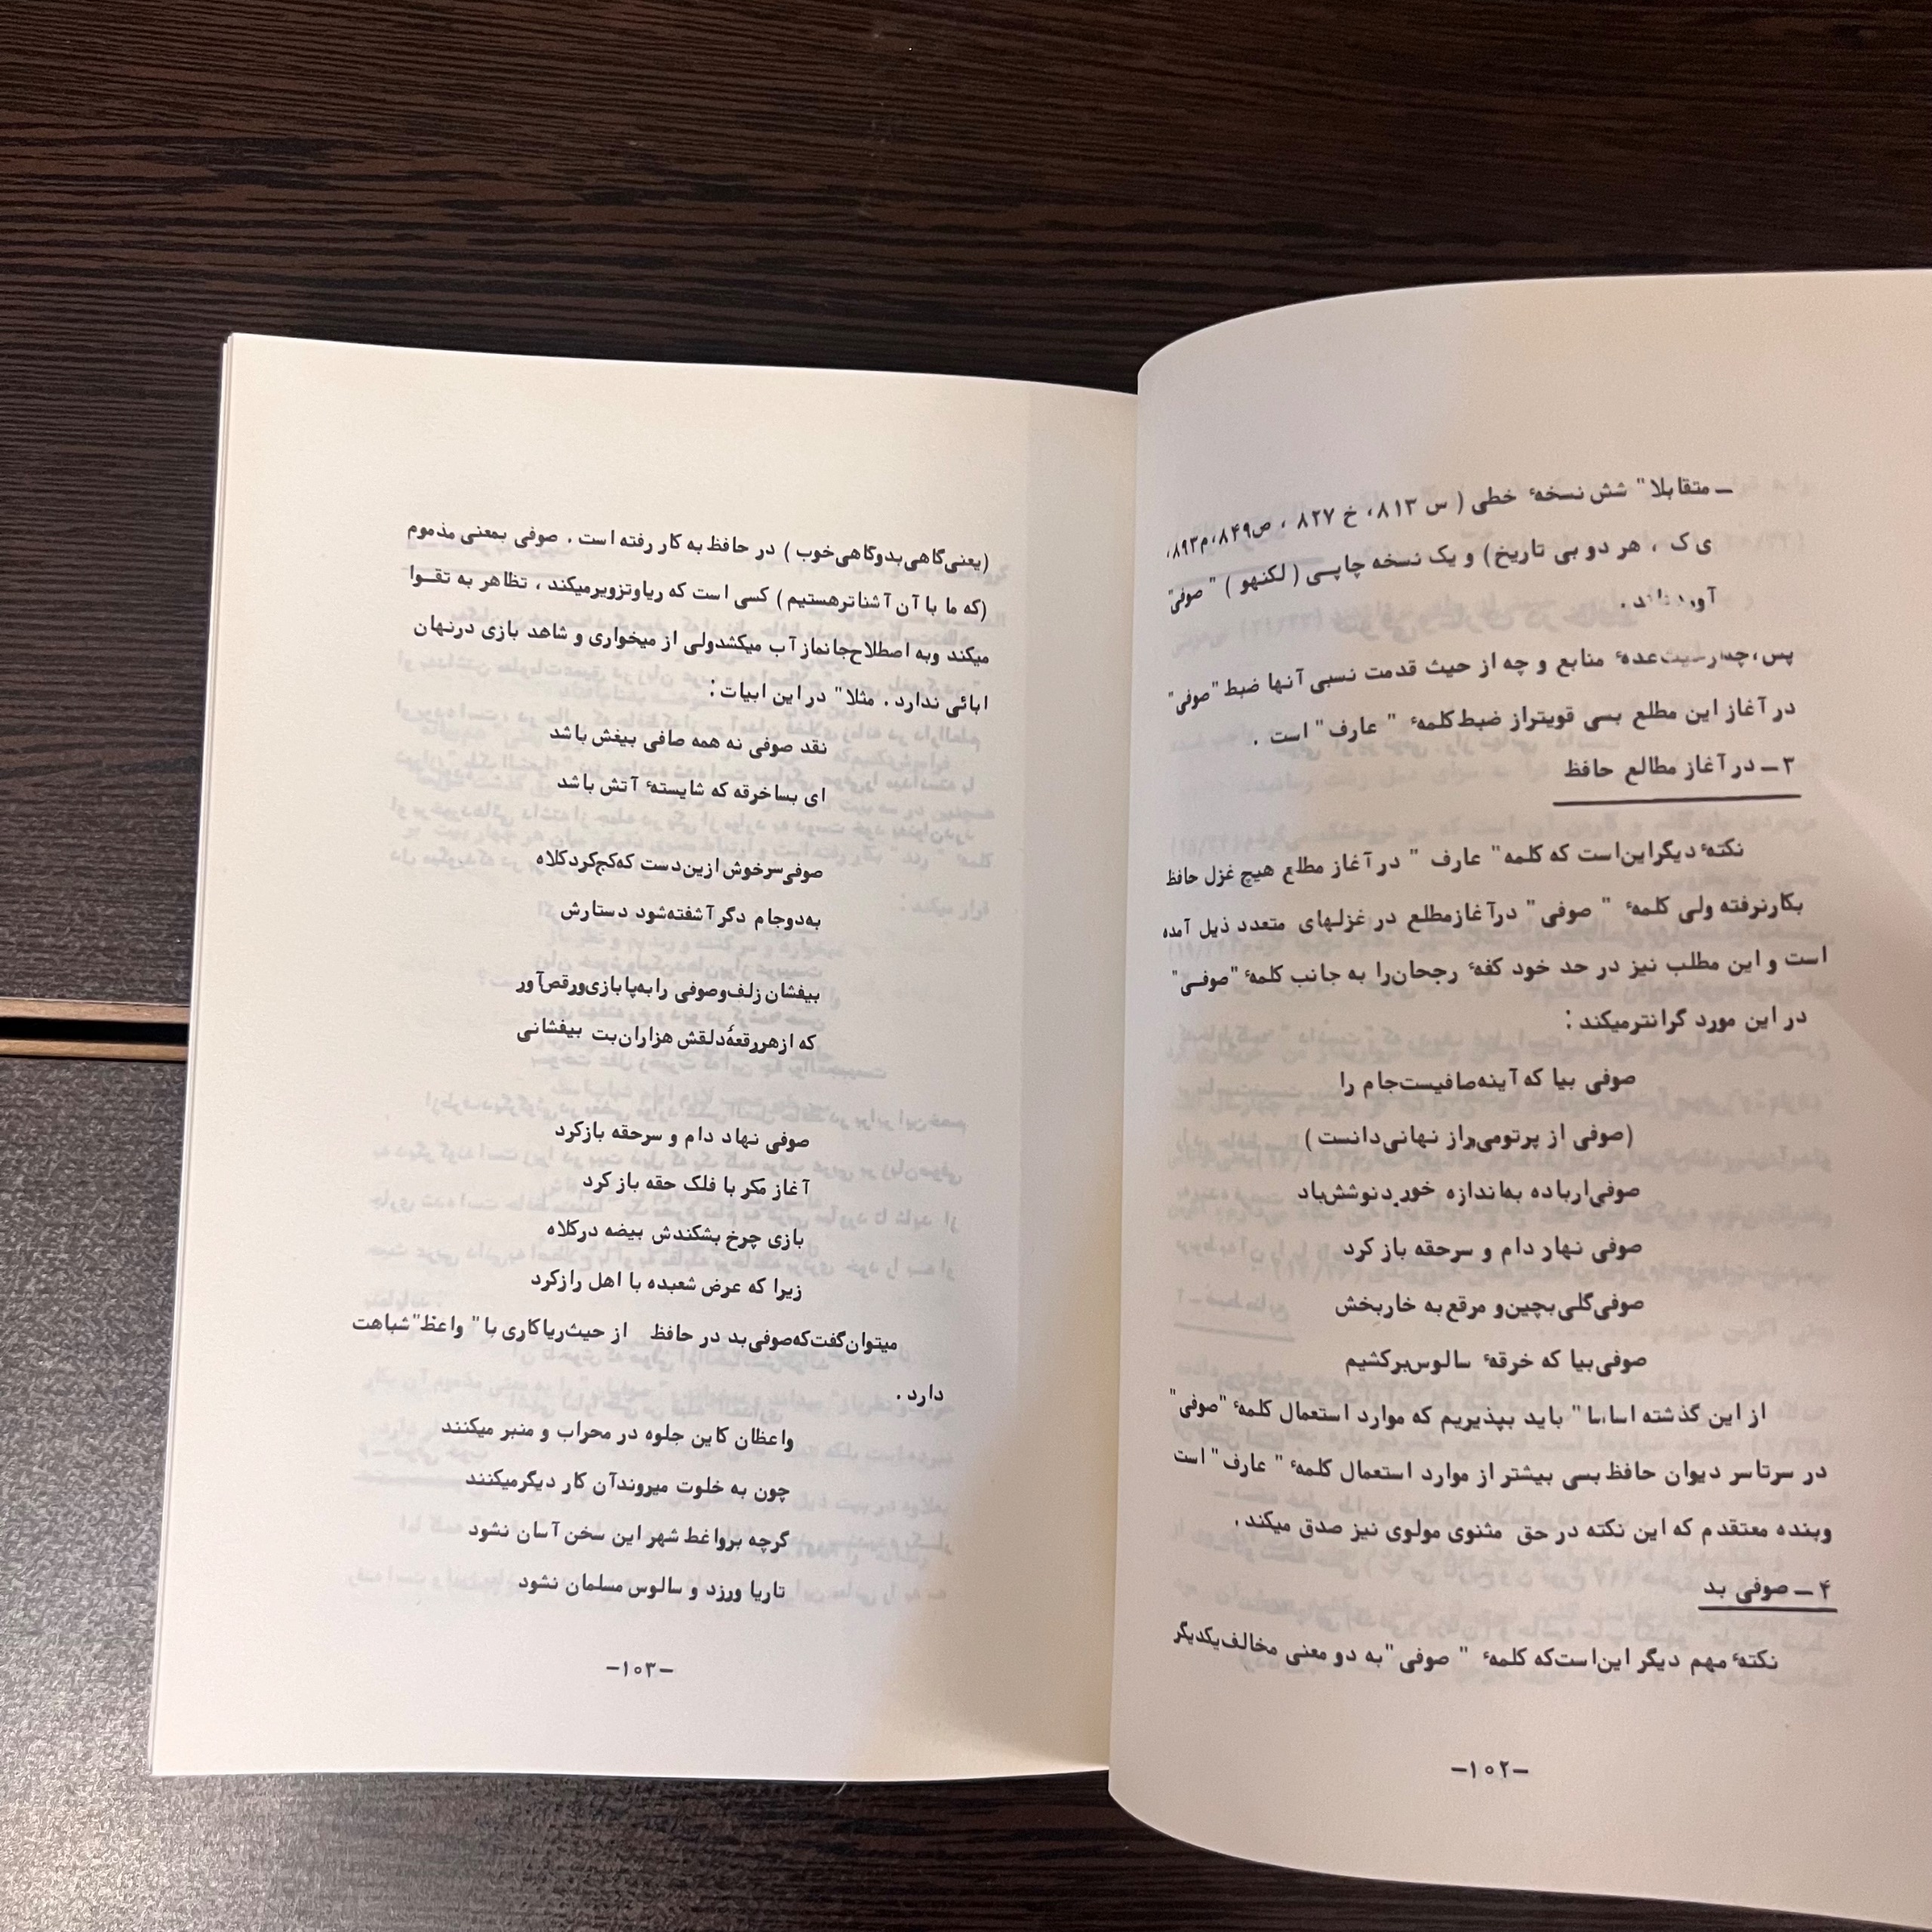 ـ متقابلا" شش نسخهٔ خطی ( س ۸۱۳، خ ۸۲۷ ، ص۸۴۹،م۸۹۳،
ی ک ، هر دو بی تاریخ) و یک نسخه چاپی ( لکنهو ) " صوفی"
آورده‌اند .
پس،چه‌ازحیث‌عدهٔ منابع و چه از حیث قدمت نسبی آنها ضبط "صوفی"
در آغاز این مطلع بسی قویتراز ضبط کلمهٔ " عارف " است .
۳ ـ در آغاز مطالع حافظ
نکتهٔ دیگراین‌است که کلمه" عارف " در آغاز مطلع هیچ غزل حافظ
بکارنرفته ولی کلمهٔ " صوفی " درآغازمطلع در غزلهای متعدد ذیل آمده
است و این مطلب نیز در حد خود کفهٔ رجحان‌را به جانب کلمهٔ "صوفی"
در این مورد گرانترمیکند :
صوفی بیا که آینه‌صافیست‌جام را
(صوفی از پرتومی‌راز نهانی‌دانست )
صوفی‌ارباده به‌اندازه خورد‌نوشش‌باد
صوفی نهار دام و سرحقه باز کرد
صوفی‌گلی‌بچین‌و مرقع به خاربخش
صوفی‌بیا که خرقهٔ سالوس‌برکشیم
از این گذشته اساسا" باید بپذیریم که موارد استعمال کلمهٔ "صوفی"
در سرتاسر دیوان حافظ بسی بیشتر از موارد استعمال کلمهٔ " عارف " است
وبنده معتقدم که این نکته در حق مثنوی مولوی نیز صدق میکند.
۴ ـ صوفی بد
نکتهٔ مهم دیگر این‌است‌که کلمهٔ " صوفی "به دو معنی مخالف‌یکدیگر
-۱۰۲-
(یعنی‌گاهی‌بدوگاهی‌خوب ) در حافظ به کار رفته است . صوفی بمعنی مذموم
(که ما با آن آشناترهستیم ) کسی است که ریاوتزویرمیکند ، تظاهر به تقـوا
میکند وبه اصطلاح‌جانماز آب میکشدولی از میخواری و شاهد بازی درنهان
ابائی ندارد . مثلا" در این ابیات :
نقد صوفی نه همه صافی بیغش باشد
ای بساخرقه که شایستهٔ آتش باشد
صوفی‌سرخوش ازین‌دست که‌کج‌کرد‌کلاه
به‌دوجام دگر آشفته‌شود دستارش
بیفشان زلف‌وصوفی رابه‌پابازی‌ورقص‌آور
که ازهررقعهٔ‌دلقش هزاران‌بت بیفشانی
صوفی نهاد دام و سرحقه بازکرد
آغاز مکر با فلک حقه باز کرد
بازی چرخ بشکندش بیضه درکلاه
زیرا که عرض شعبده با اهل رازکرد
میتوان‌گفت‌که‌صوفی‌بد در حافظ از حیث‌ریاکاری با " واعظ"شباهت
دارد .
واعظان کاین جلوه در محراب و منبر میکنند
چون به خلوت میروندآن کار دیگرمیکنند
گرچه برواغط شهر این سخن آسان نشود
تاریا ورزد و سالوس مسلمان نشود
-۱۰۳-